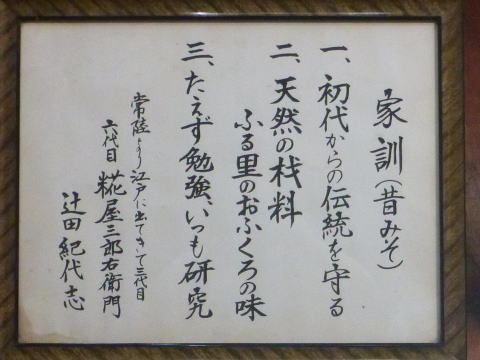 家訓(昔みそ)
一、初代からの伝統を守る
二、天然の材料
ふる里のおふくろの味
三、たえず勉強、いつも研究
常陸より江戸に出てきて三代目
六代目 糀屋三郎右衛門
辻田紀代志